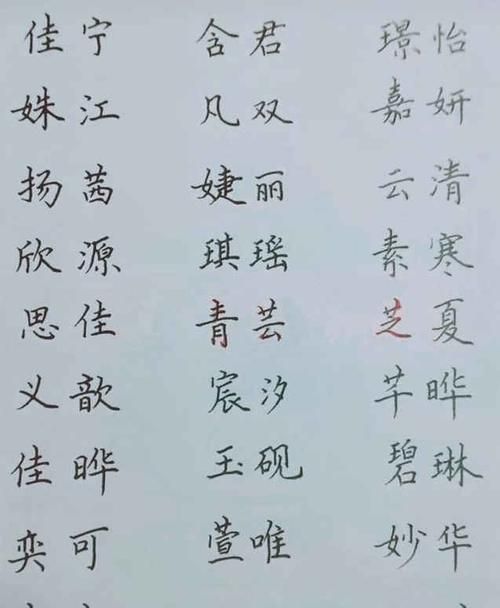 佳宁 含君 璟怡
姝江 凡双 嘉妍
扬茜 婕丽 云清
欣源 琪瑶 素寒
思佳 青芸 芝夏
义歆 宸汐 芊晔
佳晔 玉砚 碧琳
奕可 萱唯 妙华